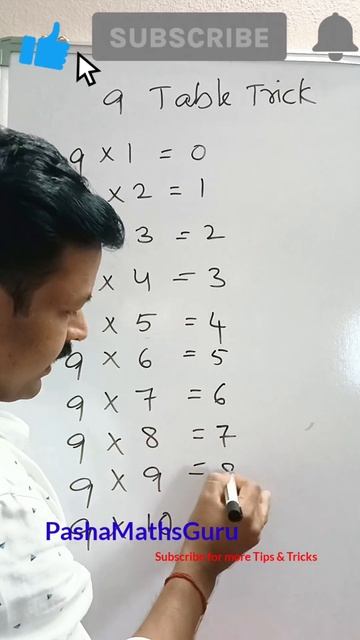 SUBSCRIBE
9 Table Trick
9 × 1 = 0
× 2 = 1
3 = 2
× 4 = 3
× 5 = 4
9 × 6 = 5
9 × 7 = 6
9 × 8 = 7
9 × 9 = 8
9 × 10
PashaMathsGuru
Subscribe for more Tips & Tricks